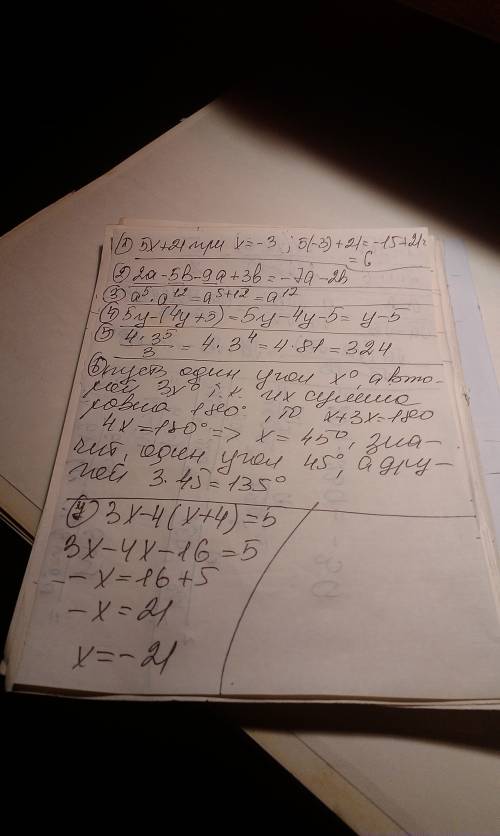 1) 5x+21 при x=-3 ; 5(-3)+21=-15+21=
=6
2) 2a-5b-9a+3b=-7a-2b
3) a⁵·a¹²=a⁵⁺¹²=a¹²
4) 5y-(4y+5)=5y-4y-5=y-5
5) 4·3⁵/3 = 4·3⁴=4·81=324
6) пусть один угол x°, а вто-
рой 3x°, т.к. их сумма
равна 180°, то x+3x=180
4x=180° => x=45°, зна-
чит, один угол 45°, а дру-
гой 3·45=135°
7) 3x-4(x+4)=5
3x-4x-16=5
-x=16+5
-x=21
x=-21